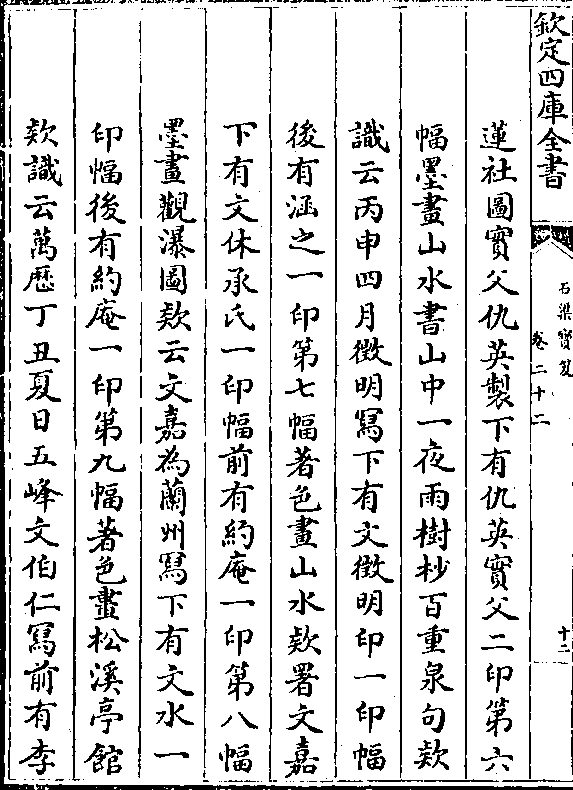 欽定四庫全書
石渠寶笈
卷二十二
十二
蓮社圖實父仇英製下有仇英實父二印第六
幅墨畫山水書山中一夜雨樹杪百重泉句欵
識云丙申四月徴明寫下有文徴明印一印幅
後有涵之一印第七幅著色畫山水欵署文嘉
下有文休承氏一印幅前有約庵一印第八幅
墨畫觀瀑圖欵云文嘉為蘭州寫下有文水一
印幅後有約庵一印第九幅著色畫松溪亭館
欵識云萬厯丁丑夏日五峰文伯仁寫前有李